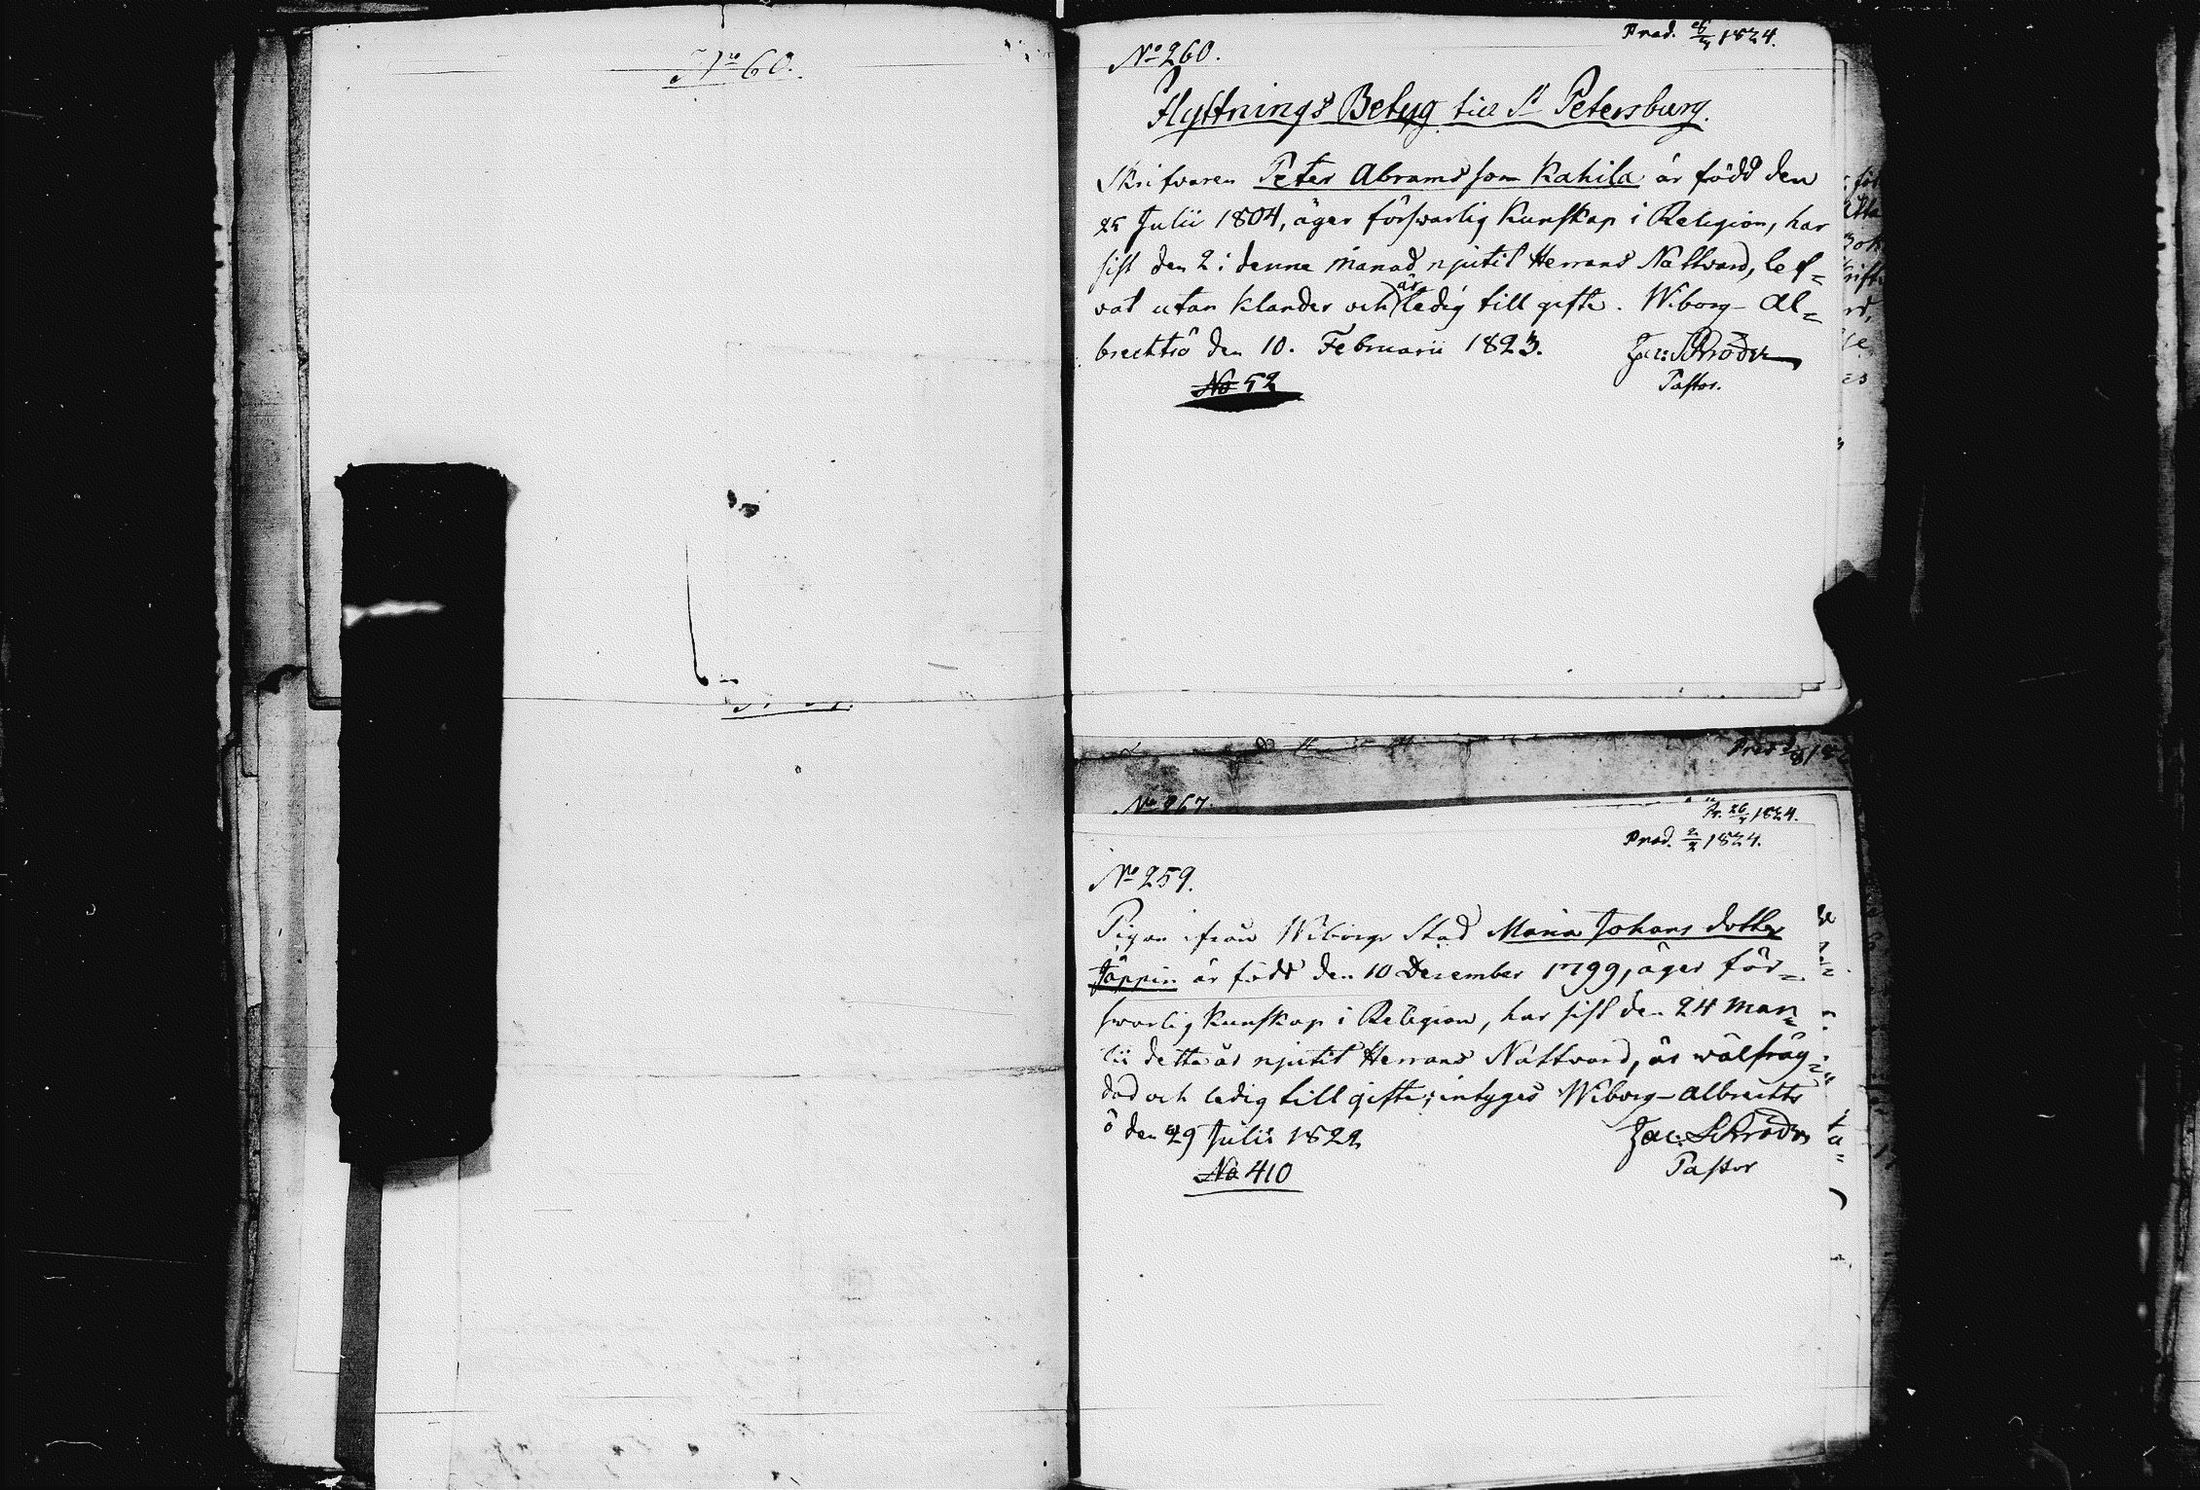 No 60.
Prod. 26/4 1824.
No 260.
Flyttnings Betyg till St Petersburg.
Skrifvaren Peter Abramsson Kahila är född den
25 Julii 1804, äger förswarlig Kunskap i Religion, har
sist den 2 i denne månad njutit Herrans Nattvard, lef=
vat utan klander och är ledig till gifte. Wiborg-Al=
brechtsö den 10. Februarii 1823.
Jac: Schröder
Pastor.
No 52
No 267.
Pr. 26/4 1824.
Prod. 2/2 1824.
No 259.
Pigan ifrån Wiborgs Stad Maria Johans dotter
Jäppin är född den 10 December 1799, äger för=
swarlig kunskap i Religion, har sist den 24 Mar=
tii detta år njutit Herrans Nattvard, är wälfräg=
dad och ledig till gifte; intyges Wiborg-Albrechts
ö den 29 Julii 1822
Jac: Schröder
Pastor
No 410